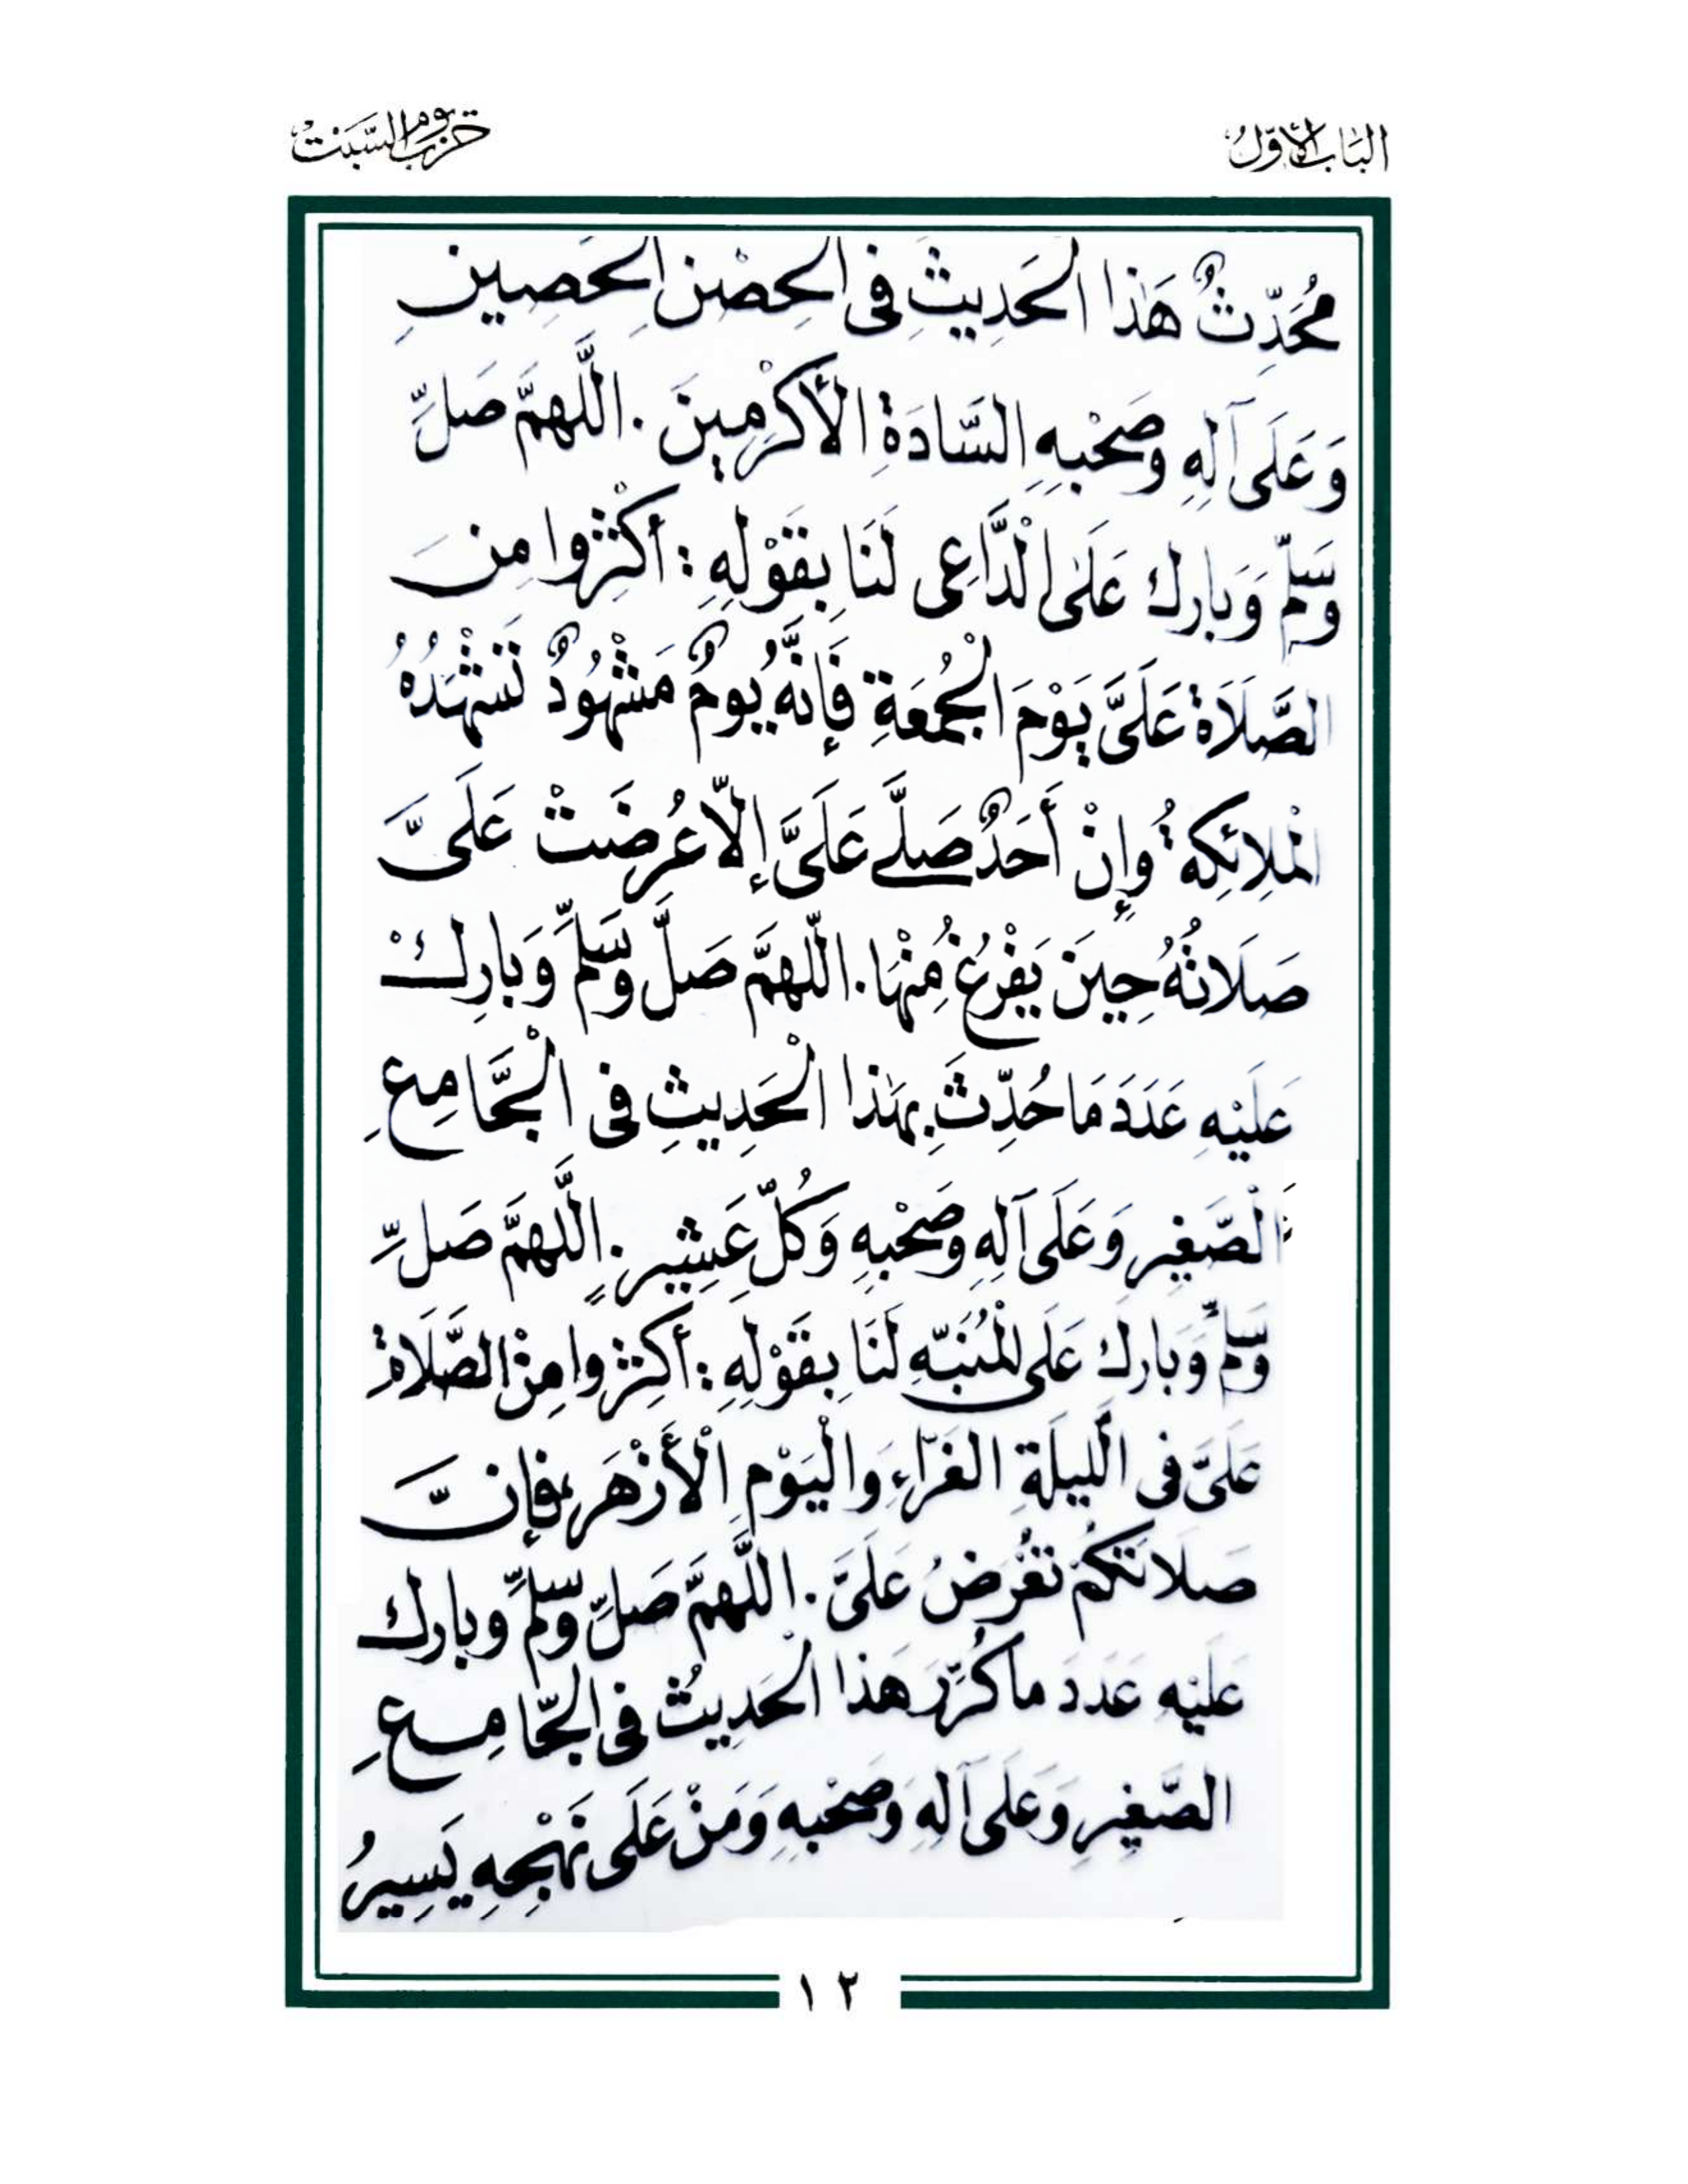 الباب الأوّل
حزب يوم السّبت
مُحَدِّثٌ هَذا الحَدِيثَ فِى الحِصْنِ الحَصِينِ
وَعَلَى آلِهِ وصَحْبِهِ السَّادَةِ الأَكْرَمِينَ . اللَّهمَّ صَلِّ
وَسَلِّمْ وَبَارِك عَلَى الْدَّاعِى لَنَا بِقَوْلِهِ : أَكْثِرُوا مِنَ
الصَّلَاة عَلَىَّ يَوْمَ الْجُمُعَةِ فَإِنَّهُ يُومٌ مَشْهُودٌ تَشْهَدُهُ
الْمَلائِكةُ وإِنْ أَحَدٌ صَلَّى عَلَىَّ إِلّا عُرِضَتْ عَلَىَّ
صَلَاتُهُ حِينَ يَفْرُغُ مِنْهَا . اللَّهمَّ صَلِّ وَسَلِّمْ وَبَارِكْ
عَلَيْهِ عَدَدَ مَا حُدِّثَ بِهَذا الْحَدِيثِ فِى الْجَّامِعِ
الْصَّغِيرِ وَعَلَى آلِهِ وصَحْبِهِ وَكُلِّ عَشِيرٍ . اللَّهمَّ صَلِّ
وَسَلِّمْ وَبَارِك عَلَى الْمُنَبِّهِ لَنَا بِقَوْلِهِ : أَكثِرُوا مِنْ الصَّلَاةِ
عَلَىَّ فى الَّليلَةِ الغَرّاءِ وَالْيَوْمِ الْأَزْهَرِ ، فإِنَّ
صَلاتَكُمْ تُعْرَضُ عَلَىَّ . اللَّهمَّ صَلِّ وسَلِّمْ وبارك
عَلَيْهِ عَدَدَ ما كُرِّرَ هَذا الْحَدِيثُ فى الْجّامِعِ
الصَّغِيرِ وَعَلَى آلِهِ وَصَحْبِهِ وَمَنْ عَلَى نَهْجِهِ يَسِيرُ
١٢